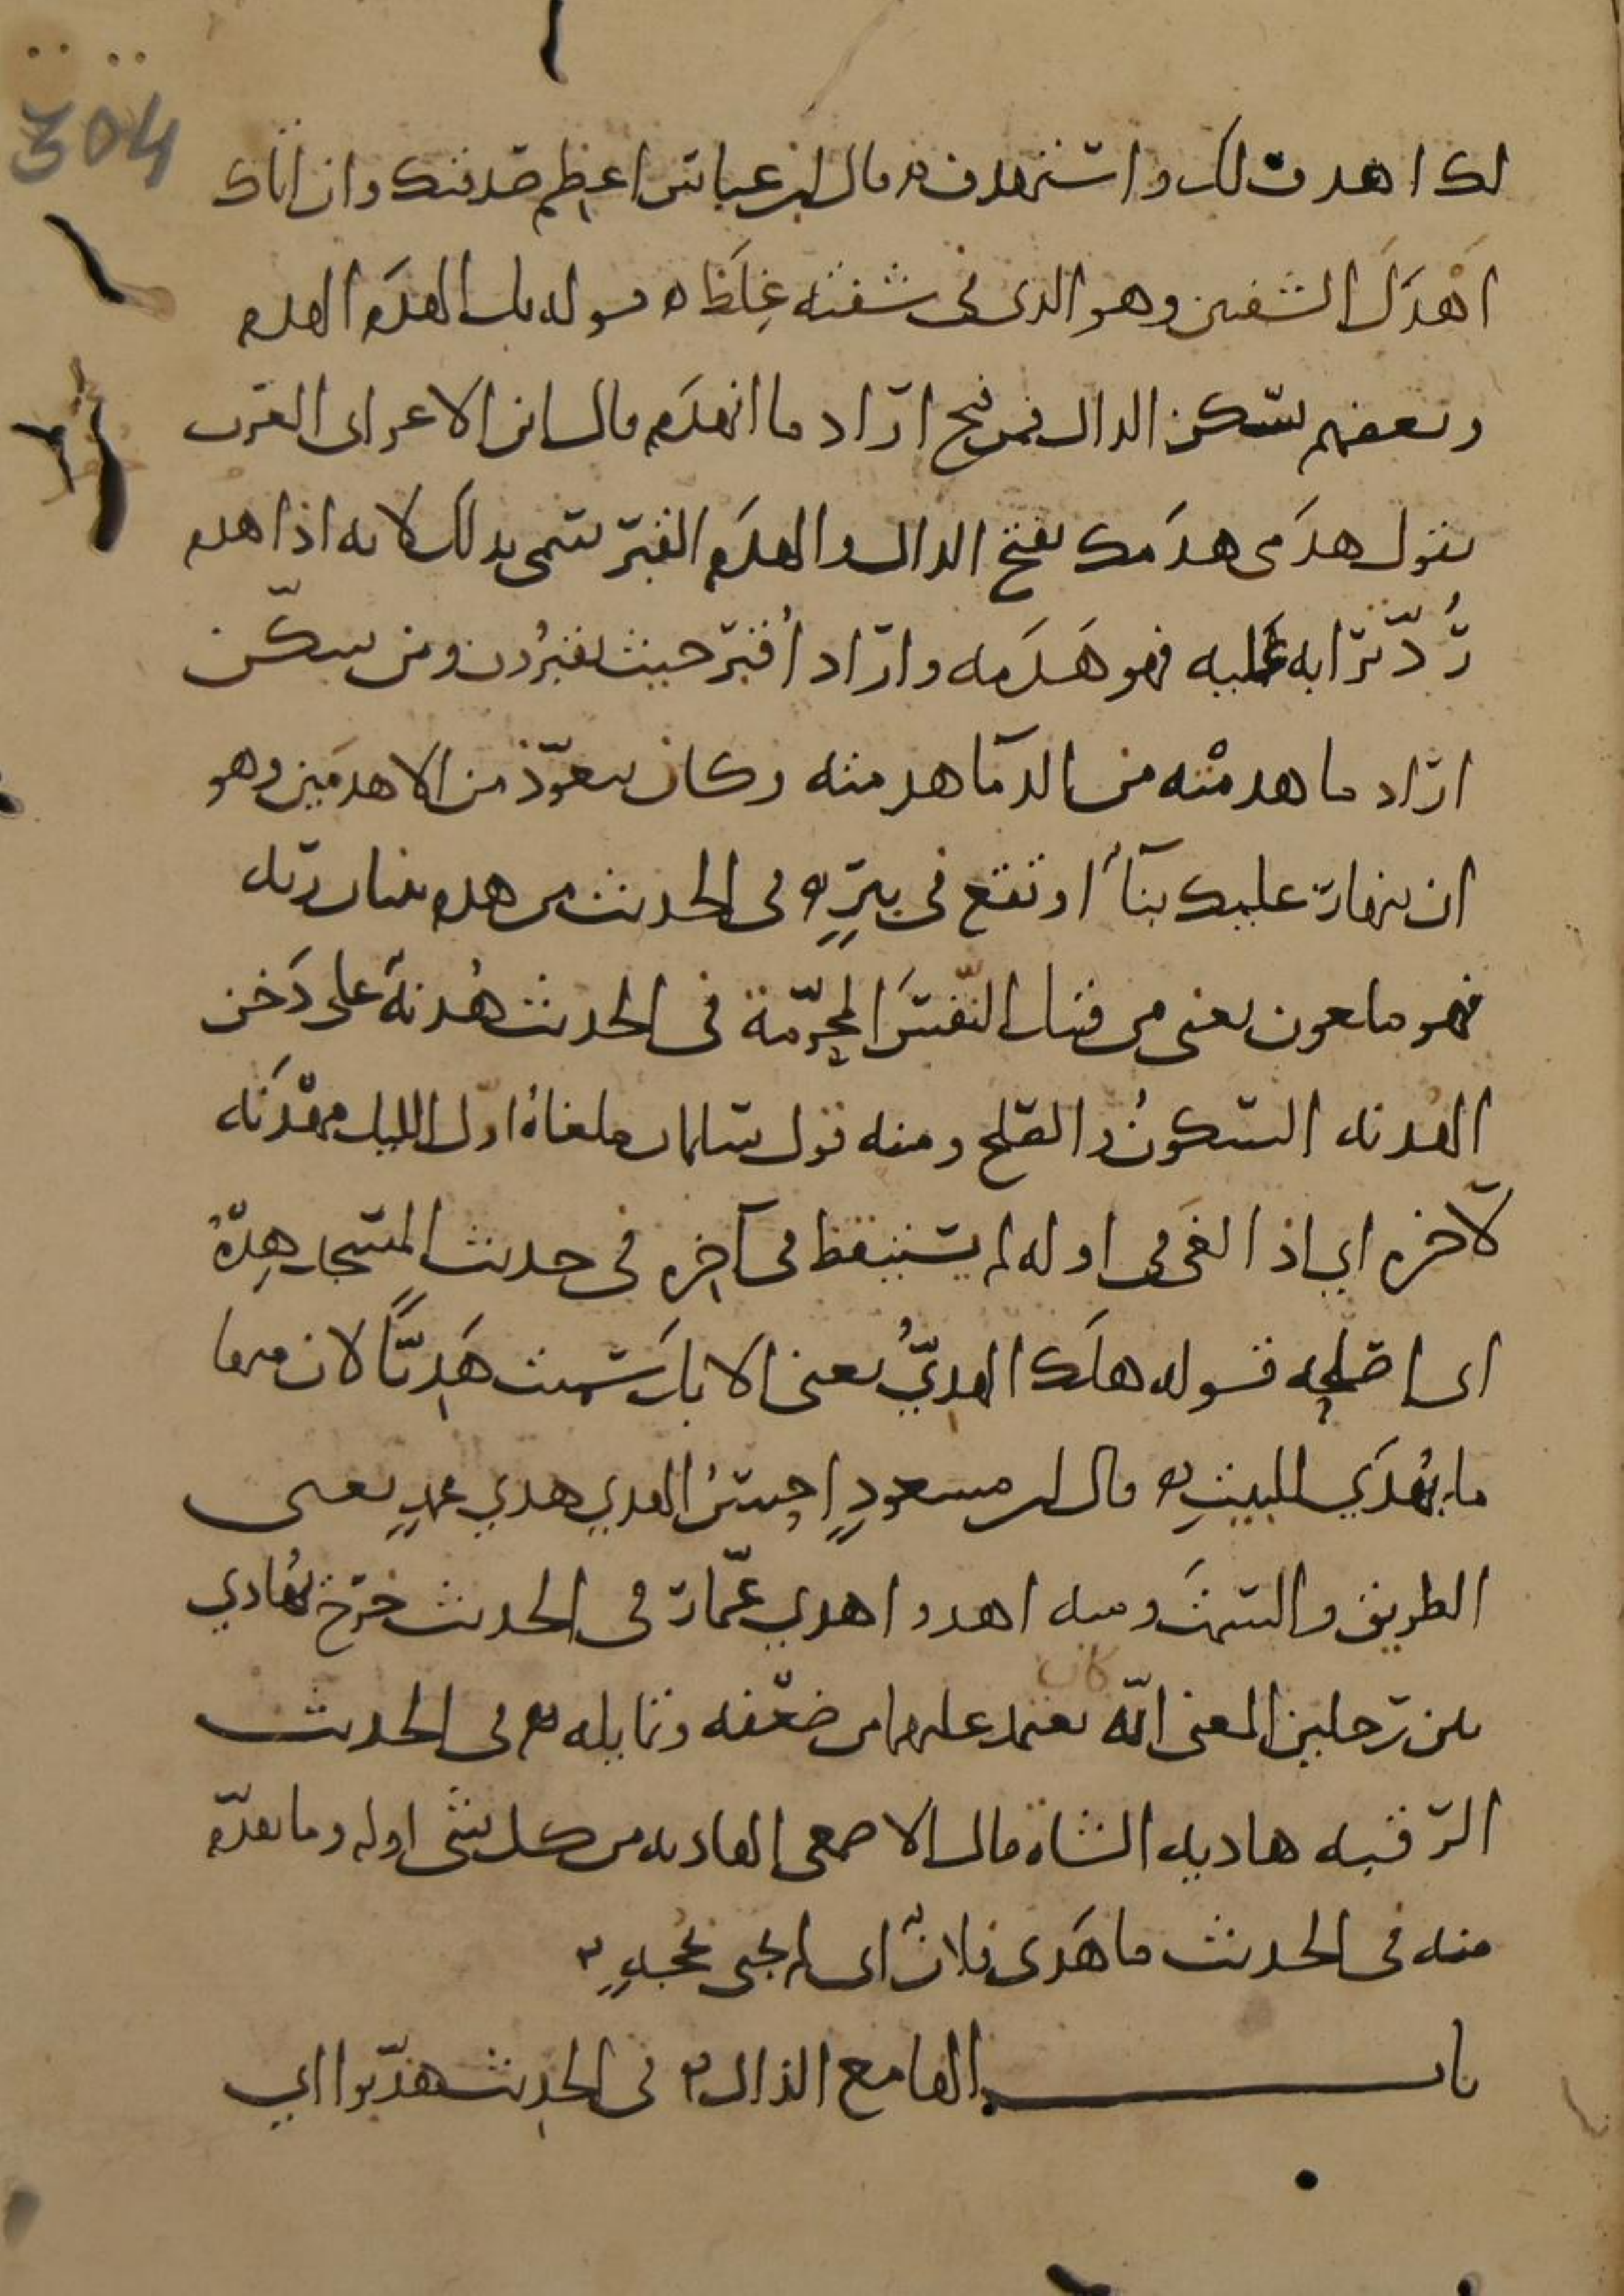 304
لك اهدف لك واستهدف قال ابن عباس اعطهم صدقتك وان اتاك
اَهْدَلُ الشفتين وهو الذي في شفته غِلَظ ه قوله بل الهدَم الهدم
وبعضهم يسكن الدال فمن فتح اراد ما انهدَم قال ابن الاعرابي العرب
تقول هدَمي هدَمك بفتح الدال والهدَم القبر سمي بذلك لانه اذا هدم
رُدّ ترابه عليه فهو هَدَمه واراد اُقبر حيث تقبرُون ومن سكّن
اراد ما هدمْته من الدمآ هدمته وكان يتعوّذ من الاهدمَين وهو
ان ينهار عليك بنآءٌ او تقع في بيرٍ ه في الحديث من هدم بنيان ربه
فهو ملعون يعني من قتل النّفسَ المحرّمة في الحديث هُدنةٌ على دَخن
الهُدنه السكونُ والصلح ومنه قول سلمان ملغاةُ اول الليل مهْدَنَه
لآخره اي اذا لغى في اوله لم يستيقظ في آخِره في حديث المستجار هِدْهُ
اي اصلحه قوله هلَك الهديُّ يعني الابل سُميت هَدِيًّا لان منها
ما يُهْدَي للبيتِ ه قال ابن مسعودٍ احسنُ الهدي هدي محمدٍ يعني
الطريق والسمتَ ومنه اهدوا هدي عمّار في الحديث خرَج يُهادي
بين رجلين المعنى انّه كان يعتمد عليهما من ضعْفه وتمايله ه في الحديث
الرّقبه هاديه الشاة قال الاصمعي الهاديه من كل شي اوله وما تقدّم
منه في الحديث ما هَدَى فلانٌ اي لم يجي بحُجهٍ ه
باب الها مع الذال ه في الحديث هذّبوا اي